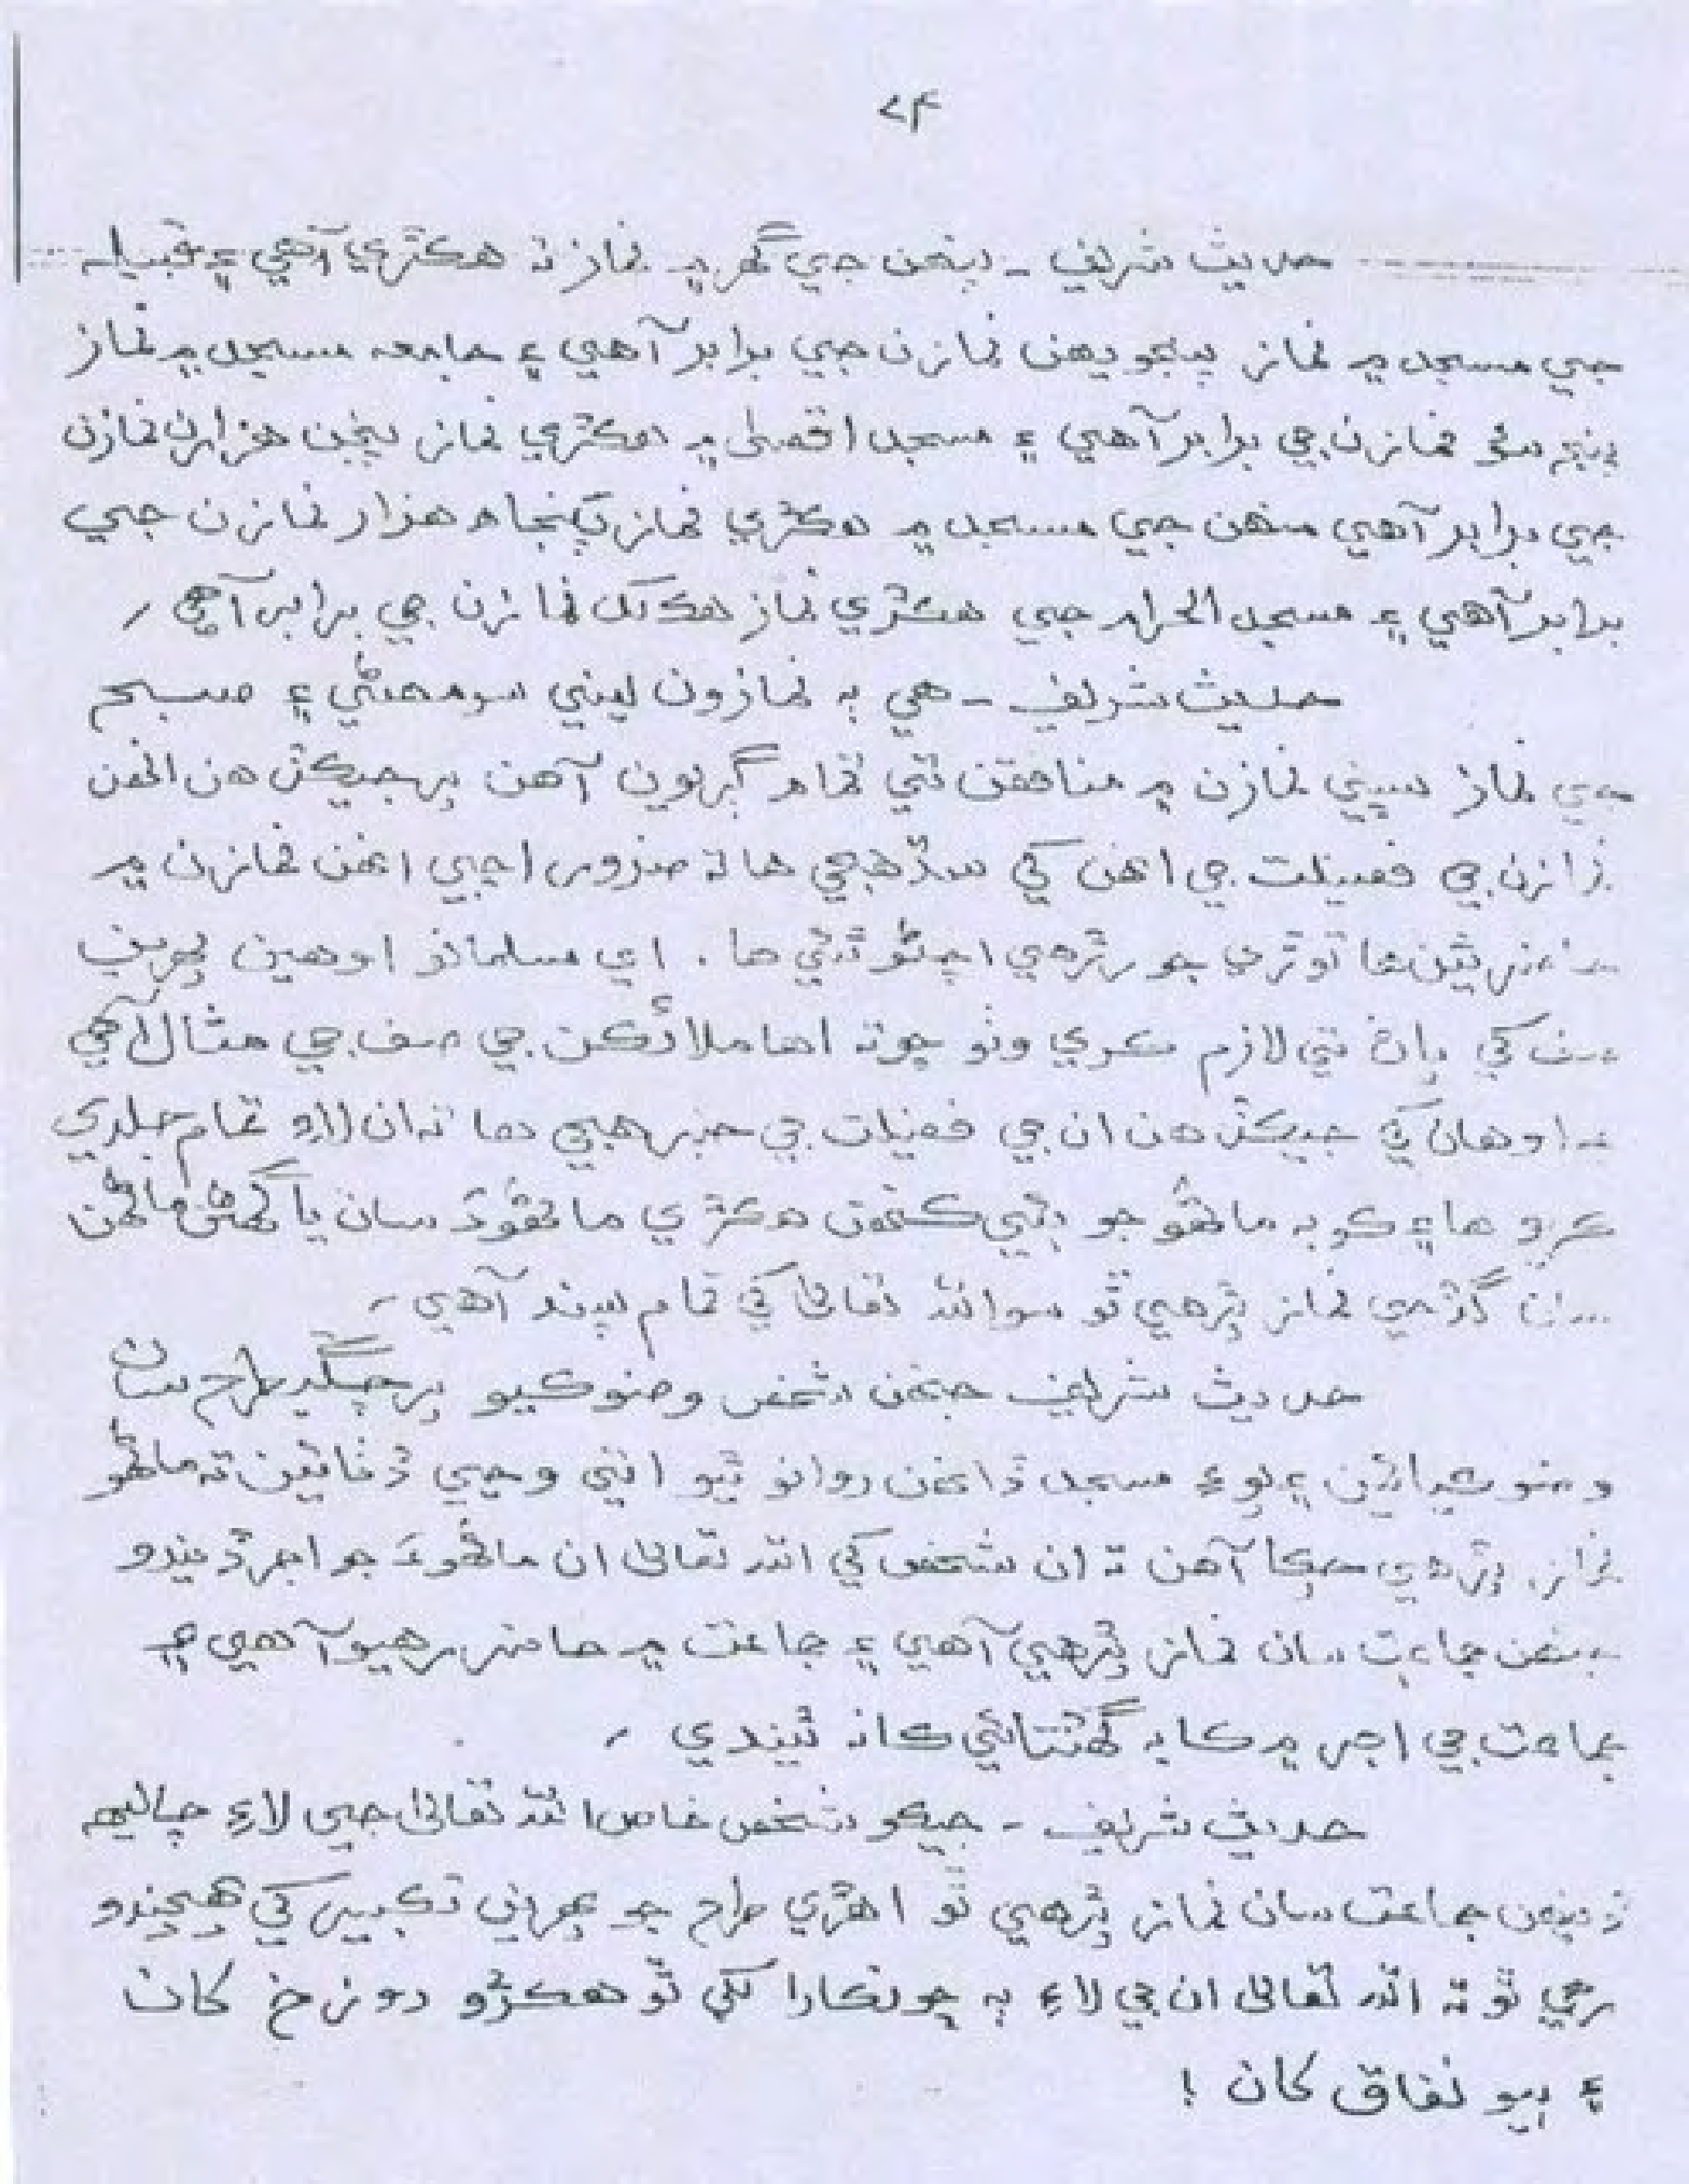 ۷۴
حديث شريف - پنهن جي گهر ۾ نماز ته هڪڙي آهي ۽ قبيله
جي مسجد ۾ نماز پنجويهن نمازن جي برابر آهي ۽ جامعه مسجد ۾ نماز
پنج سؤ نمازن جي برابر آهي ۽ مسجد اقصىٰ ۾ هڪڙي نماز پنجن هزارن نمازن
جي برابر آهي منهن جي مسجد ۾ هڪڙي نماز پنجاھ هزار نمازن جي
برابر آهي ۽ مسجد الحرام جي هڪڙي نماز هڪ لک نمازن جي برابر آهي ،
حديث شريف - هي به نمازون يعني سومهڻي ۽ صبح
جي نماز سڀني نمازن ۾ منافقن تي تمام ڳريون آهن پر جيڪڏهن انهن
نمازن جي فضيلت جي انهن کي سڌ هجي ها ته ضرور اچي انهن نمازن ۾
حاضر ٿين ها توڙي جو رڙهي اچڻو پئي ها . اي مسلمانو اوهين پهرين
صف کي پاڻ تي لازم ڪري وٺو ڇو ته اها ملائڪن جي صف جي مثال آهي
۽ اوهان کي جيڪڏهن ان جي فضيلت جي خبر هجي ها ته ان لاءِ تمام جلدي
ڪريو ها ۽ ڪو به ماڻهو جو ٻئي ڪنهن هڪڙي ماڻهوءَ سان يا گهڻن ماڻهن
سان گڏجي نماز پڙهي ٿو سو الله تعالىٰ کي تمام پسند آهي -
حديث شريف جنهن شخص وضو ڪيو پر چڱيءَ طرح سان
وضو ڪيائين ۽ پوءِ مسجد ڏانهن روانو ٿيو اتي وڃي ڏٺائين ته ماڻهو
نماز پڙهي چڪا آهن ته ان شخص کي الله تعالىٰ ان ماڻهوءَ جو اجر ڏيندو
جنهن جماعت سان نماز پڙهي آهي ۽ جماعت ۾ حاضر رهيو آهي
جماعت جي اجر ۾ ڪا به گهٽتائي ڪانه ٿيندي ،
حديث شريف - جيڪو شخص خاص الله تعالىٰ جي لاءِ چاليهه
ڏينهن جماعت سان نماز پڙهي ٿو اهڙي طرح جو پهرين تڪبير کي پهچندو
رهي ٿو ته الله تعالىٰ ان جي لاءِ ٻه ڇوٽڪارا لکي ٿو هڪڙو دوزخ کان
۽ ٻيو نفاق کان !